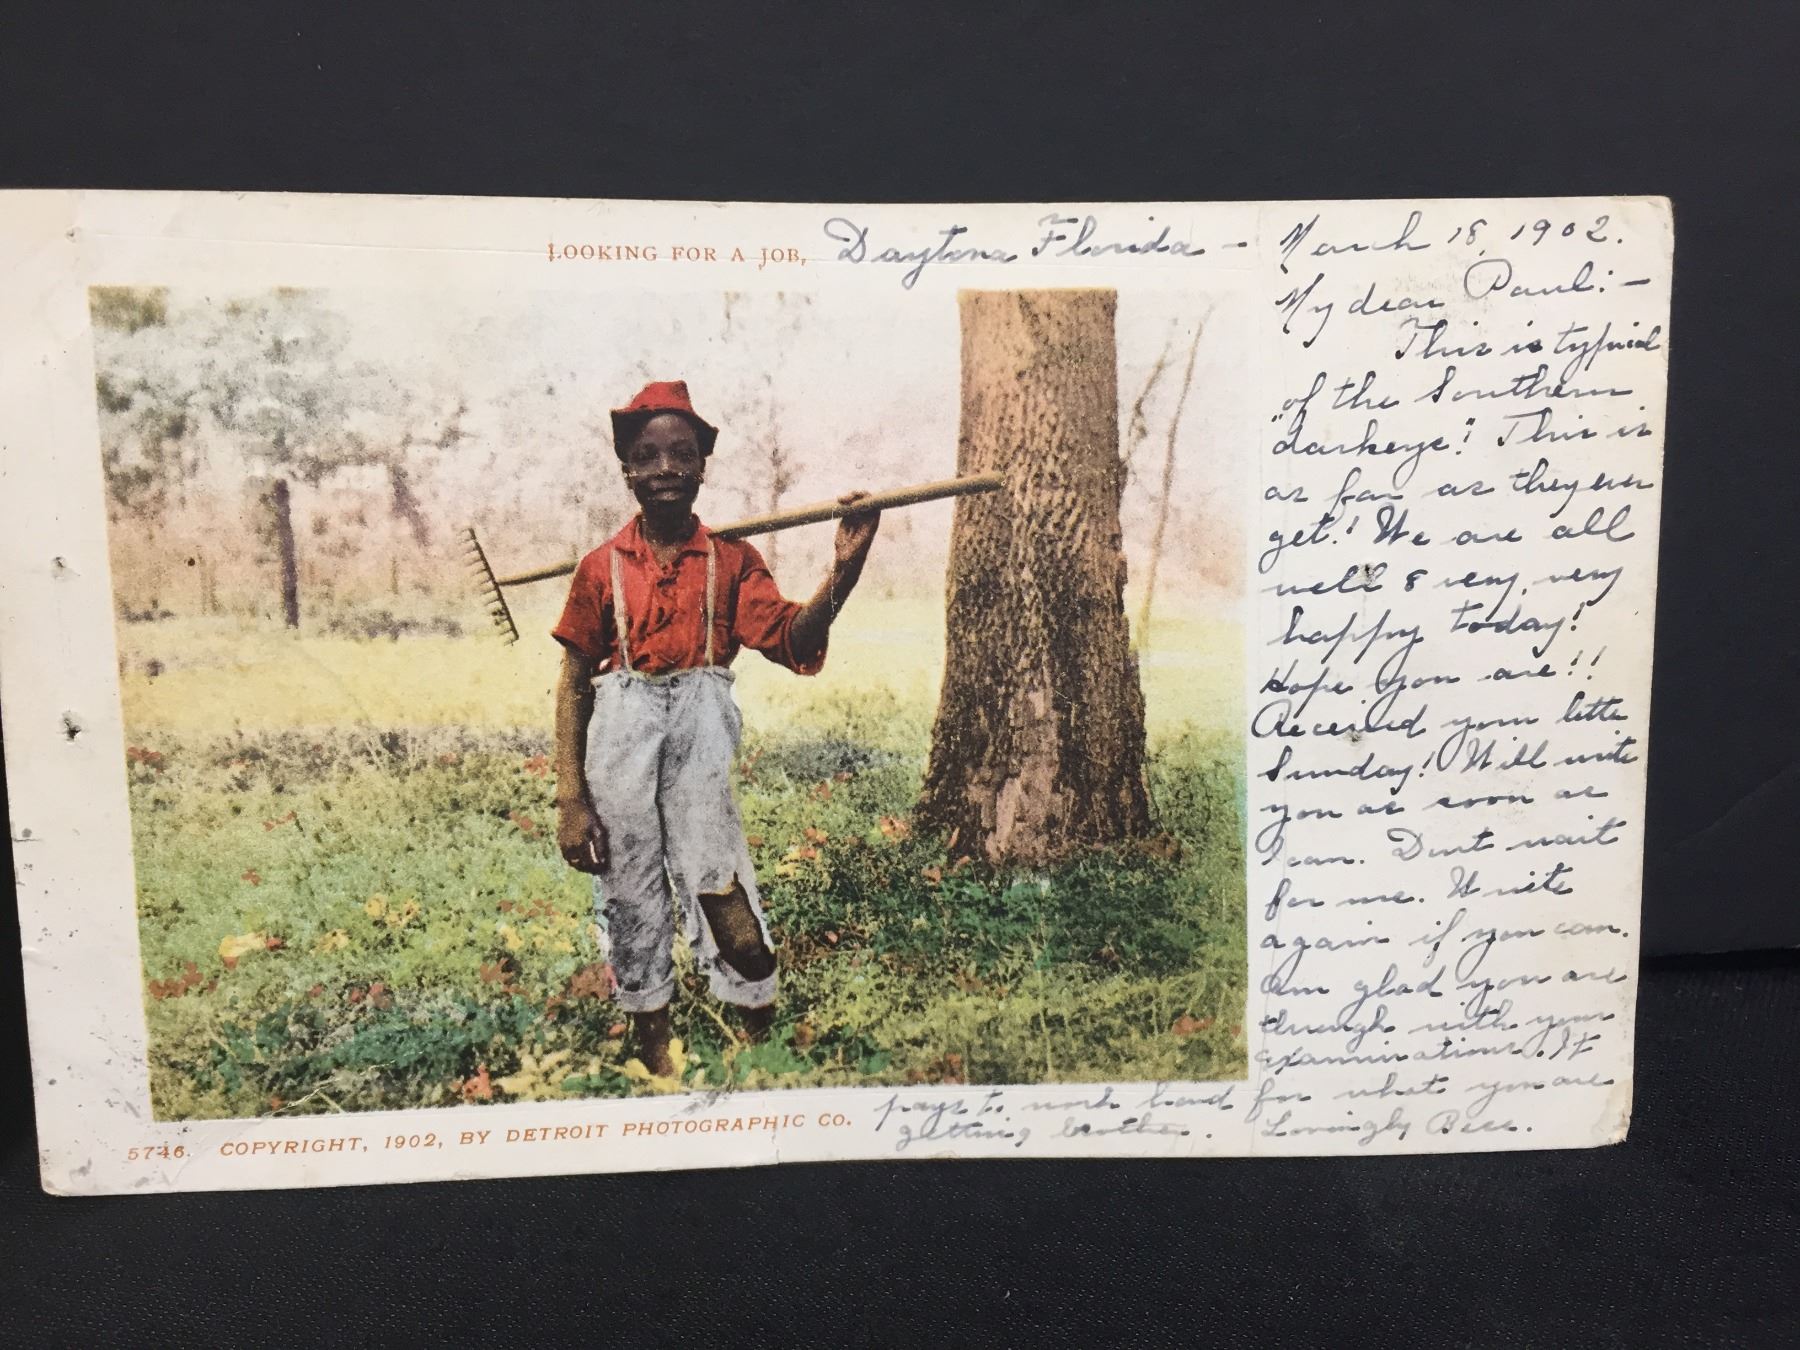 LOOKING FOR A JOB, Daytona Florida -
March 18, 1902.
My dear Paul:-
This is typical
of the Southern
"darkeye"! This is
as far as they ever
get! We are all
well & very, very
happy today!
Hope you are!!
Received your letter
Sunday! Will write
you as soon as
I can. Dont wait
for me. Write
again if you can.
Am glad you are
through with your
examinations. It
pays to work hard for what you are
getting brother. Lovingly Bess.
5746. COPYRIGHT, 1902, BY DETROIT PHOTOGRAPHIC CO.